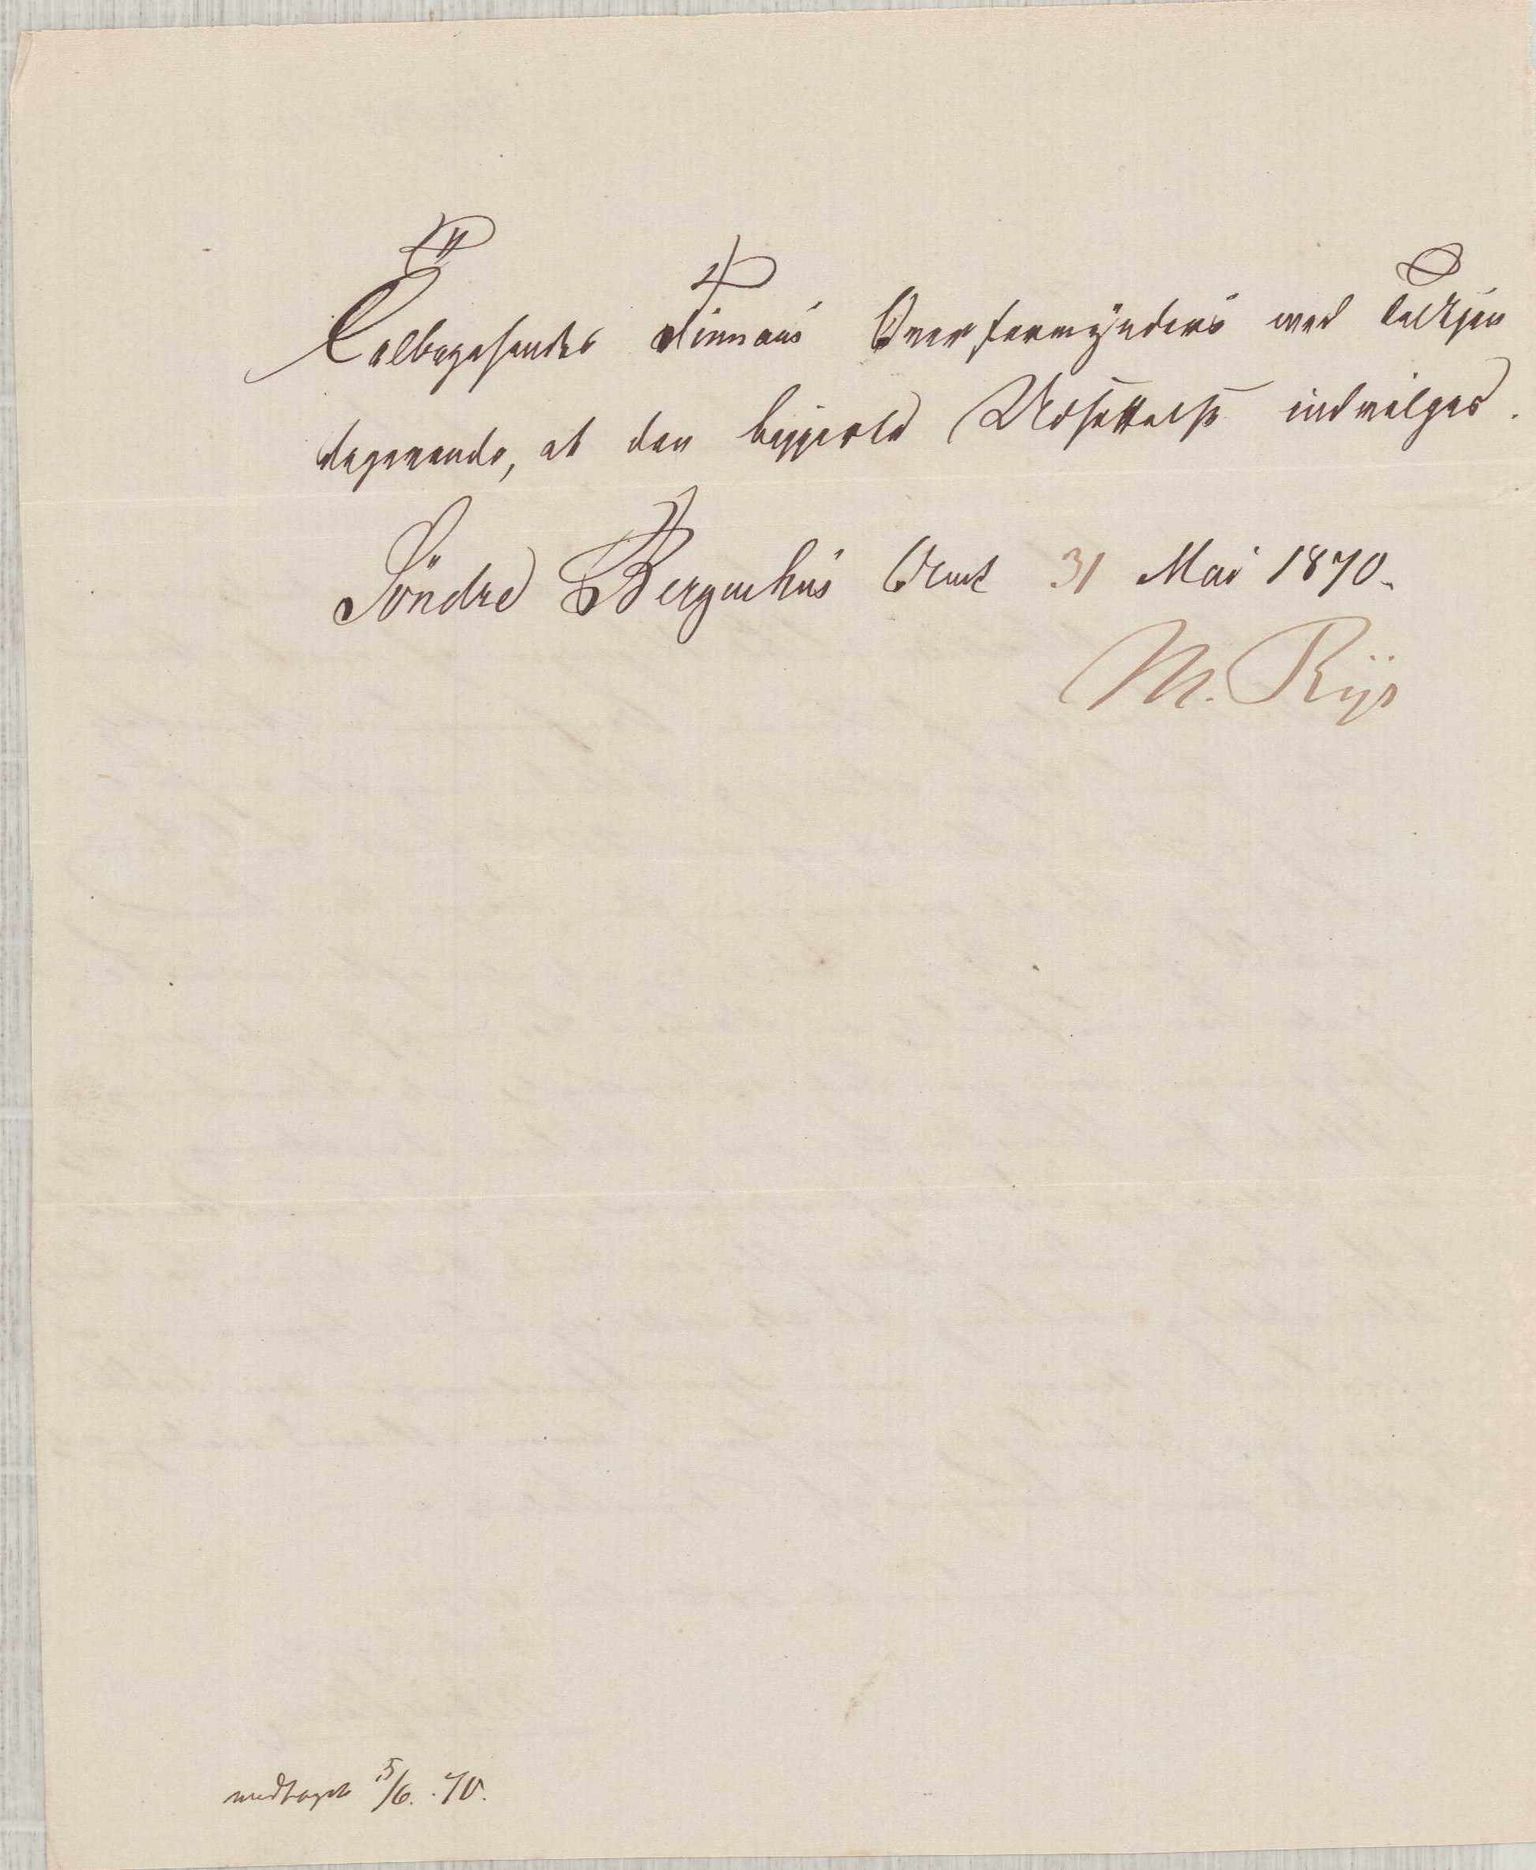 Tilbagesendes Finnaas Overformynderi med Tilkjen
degivende, at den begjerte Udsættelse indvilges.
Söndre Bergenhus Amt 31 Mai 1870.
M. Rÿe
modtaget 5/6. 70.